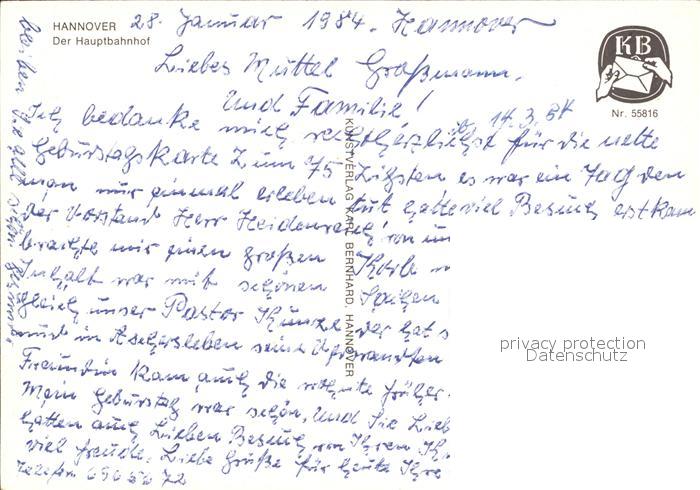 HANNOVER
Der Hauptbahnhof
28. Januar 1984. Hannover
KB
Nr. 55816
Liebes Muttel Großmann,
Und Familie!
14.3.84
Ich bedanke mich recht herzlichst für die nette
Geburtstagskarte zum 75 zigsten es war ein Tag den
man nur einmal erleben tut hatte viel Besuch erst kam
der Vorstand Herr Heidenreich von un
brachte mir einen großen Korb
Inhalt war mit schönen Sachen
gleich unser Pastor der hat s
und in Aschersleben seine Verwandten
Freundin kam auch die
Mein Geburtstag war schön, Und Sie Lieb
hatten auch Lieben Besuch von Ihren
viel freude. Liebe Grüße für heute Ihre
Telefon 6965672
bleiben Sie alle schön gesund.
KUNSTVERLAG KARL BERNHARD, HANNOVER
privacy protection
Datenschutz